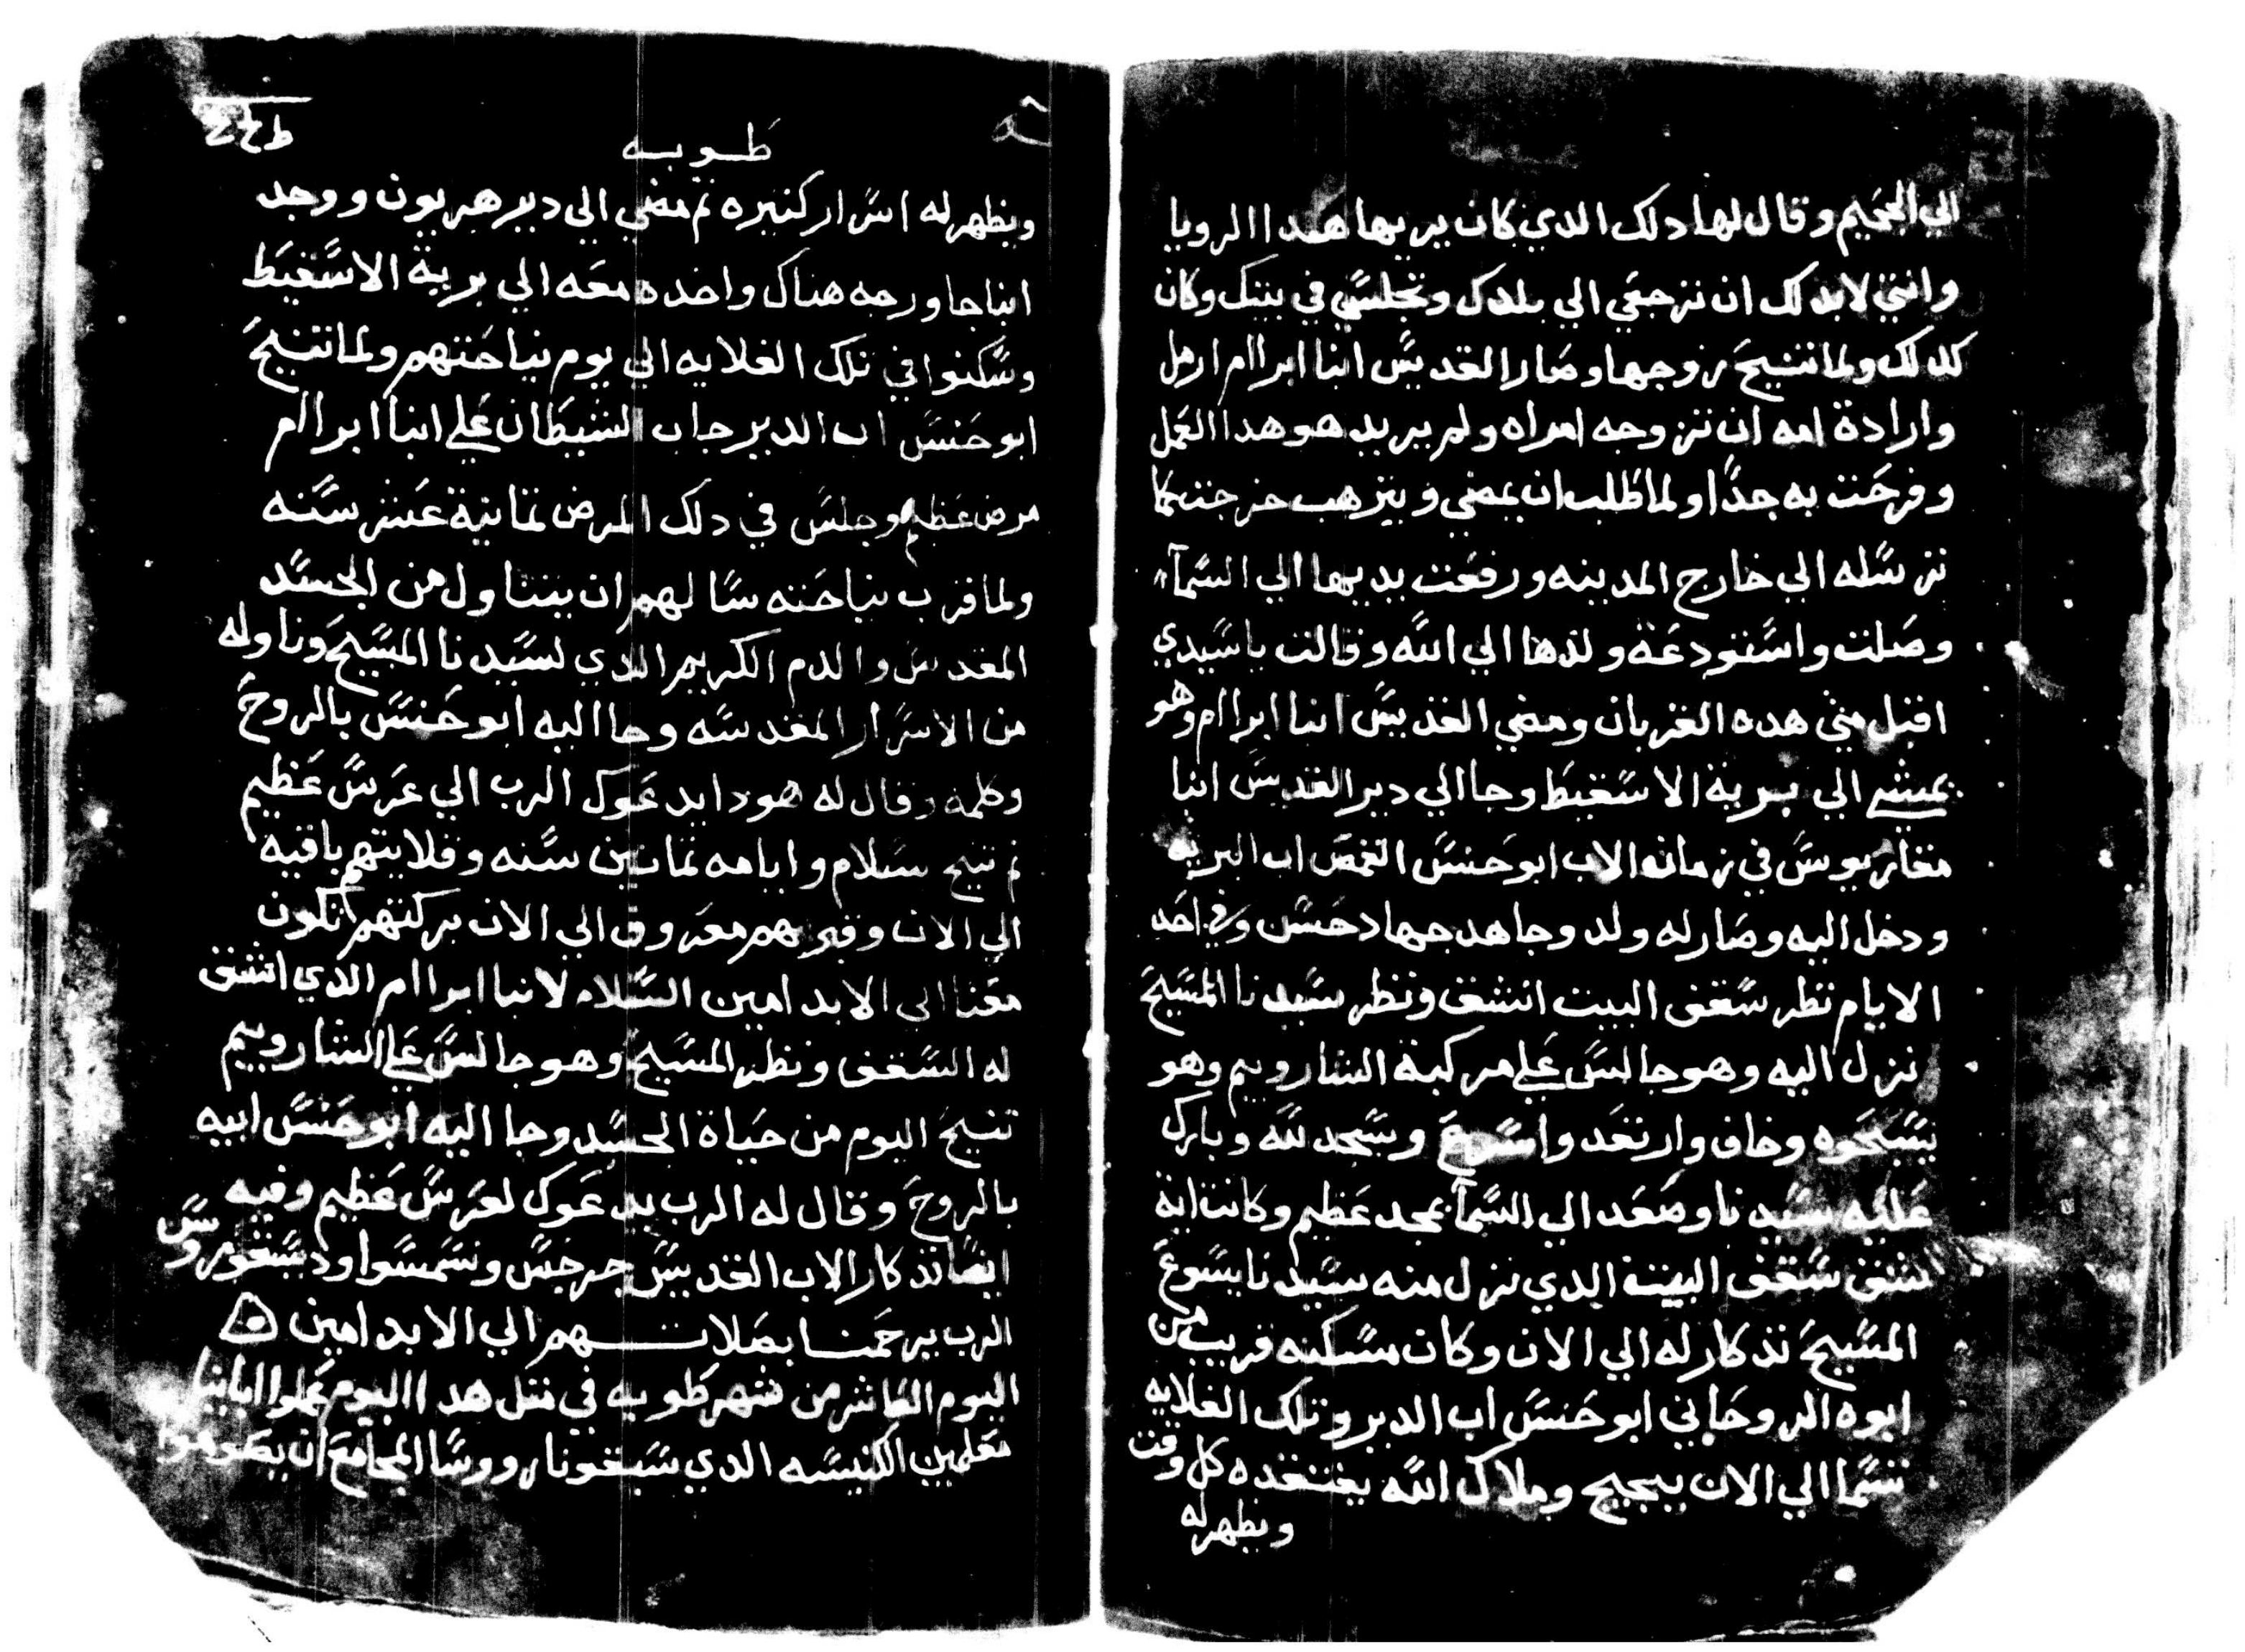 الي الجحيم وقال لها دلك الدي كان يريها هدا الرويا
وانتي لابد لك ان ترجعي الي بلدك وتجلسي في بيتك وكان
كدلك ولما تنيح زوجها وصار القديس انبا ابراام ارمل
وارادة امه ان تزوجه امراه ولم يريد هو هدا العمل
وفرحت به جدًا ولما طلب ان يمضي ويترهب خرجت كا
ترسله الي خارج المدينه ورفعت يديها الي السمآء
وصلت واستودعة ولدها الي الله وقالت ياسيدي
اقبل مني هده القربان ومضي القديس انبا ابراام وهو
يمشي الي برية الاسقيط وجا الي دير القديس انبا
مقاريوس في زمان الاب ابو حنس القمص اب البريه
ودخل اليه وصار له ولد وجاهد جهاد حسن وفي احد
الايام نظر سقف البيت انشق ونظر سيدنا المسيح
نزل اليه وهو جالس علي مركبة الشاروبيم وهو
يسبحوه وخاف وارتعد واسرع وسجد لله وبارك
عليه سيدنا وصعد الي السمآ بمجد عظيم وكانت اية
انشقق سقف البيت الدي نزل منه سيدنا يسوع
المسيح تدكار له الي الان وكان مسكنه قريب من
ابوه الروحاني ابو حنس اب الدير وتلك القلايه
تسما الي الان ببجيج وملاك الله يفتقده كل وقت
ويظهر له
طوبه
ويظهر له اسرار كتيره تم مضي الي دير هريون ووجد
انبا جاورجه هناك واخده معه الي برية الاسقيط
وسكنوا في تلك القلايه الي يوم نياحتهم ولما تنيح
ابو حنس اب الدير جاب الشيطان علي انبا ابراام
مرض عظيم وجلس في دلك المرض تمانية عشر سنه
ولما قرب نياحته سالهم ان يتناول من الجسد
المقدس والدم الكريم الدي لسيدنا المسيح وناوله
من الاسرار المقدسه وجا اليه ابو حنس بالروح
وكلمه وقال له هودا يدعوك الرب الي عرس عظيم
تم تنيح بسلام وايامه تمانين سنه وقلايتهم باقيه
الي الان وقبرهم معروف الي الان بركتهم تكون
معنا الي الابد امين السلام لانبا ابراام الدي انشق
له السقف ونظر المسيح وهو جالس علي الشاروبيم
تنيح اليوم من حياة الجسد وجا اليه ابو حنس ابيه
بالروح وقال له الرب يدعوك لعرس عظيم وفيه
ايضا تدكار الاب القديس جرجس
الرب يرحمنا بصلاتهم الي الابد امين
اليوم العاشر من شهر طوبه في متل هدا اليوم عملوا ابائنا
معلمين الكنيسه الدي سبقونا وروسا المجامع ان يصوموا